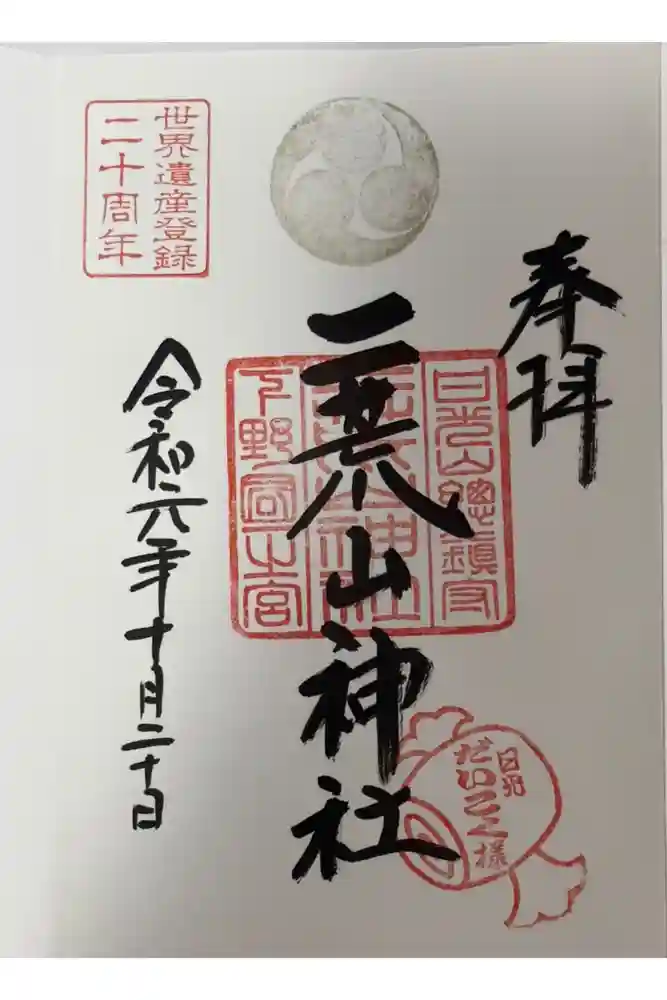 奉拝
日光山總鎮守
二荒山神社
二荒山神社
下野國一之宮
日光
だいこく様
世界遺産登録
二十周年
令和元年十月二十日